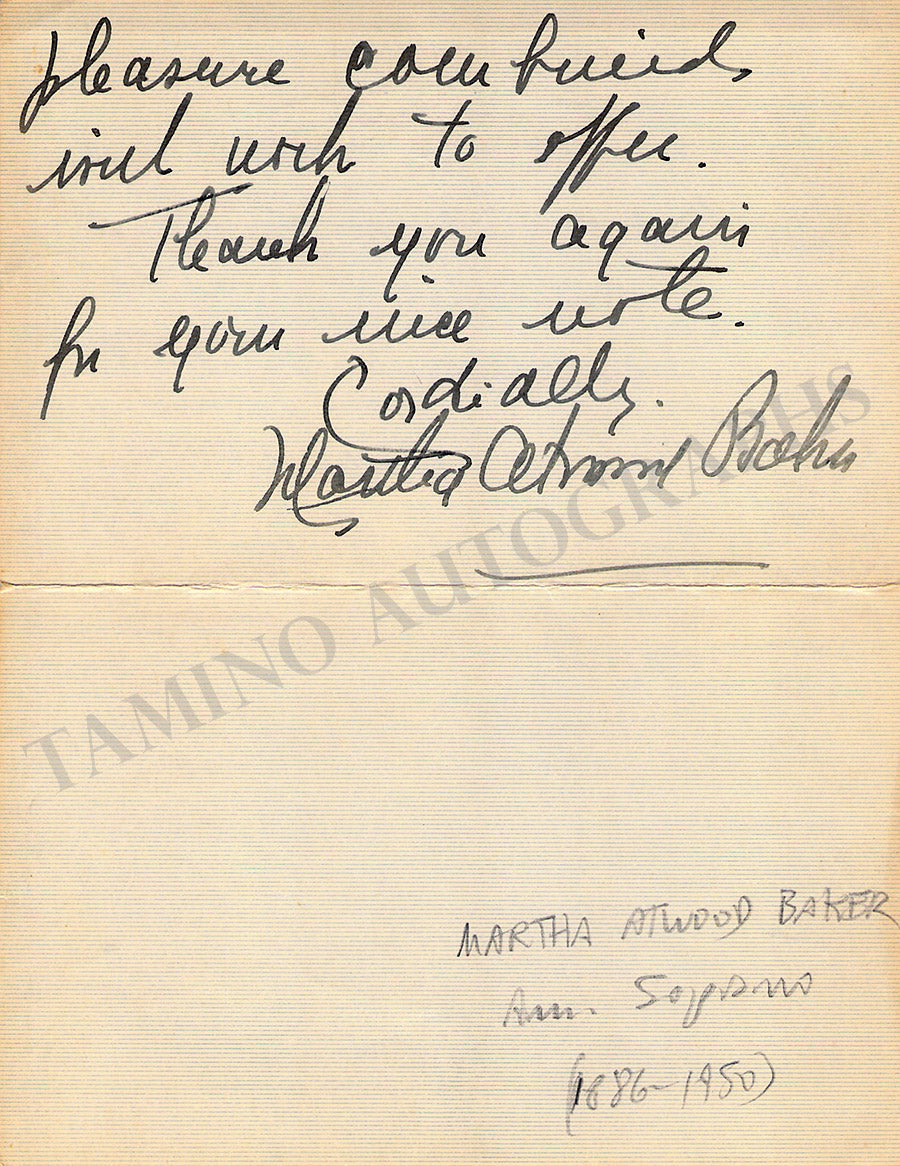 pleasure combined
with work to offer.
Thank you again
for your nice note.
Cordially.
Martha Atwood Baker
TAMINO AUTOGRAPHS
MARTHA ATWOOD BAKER
Am. Soprano
(1886-1950)